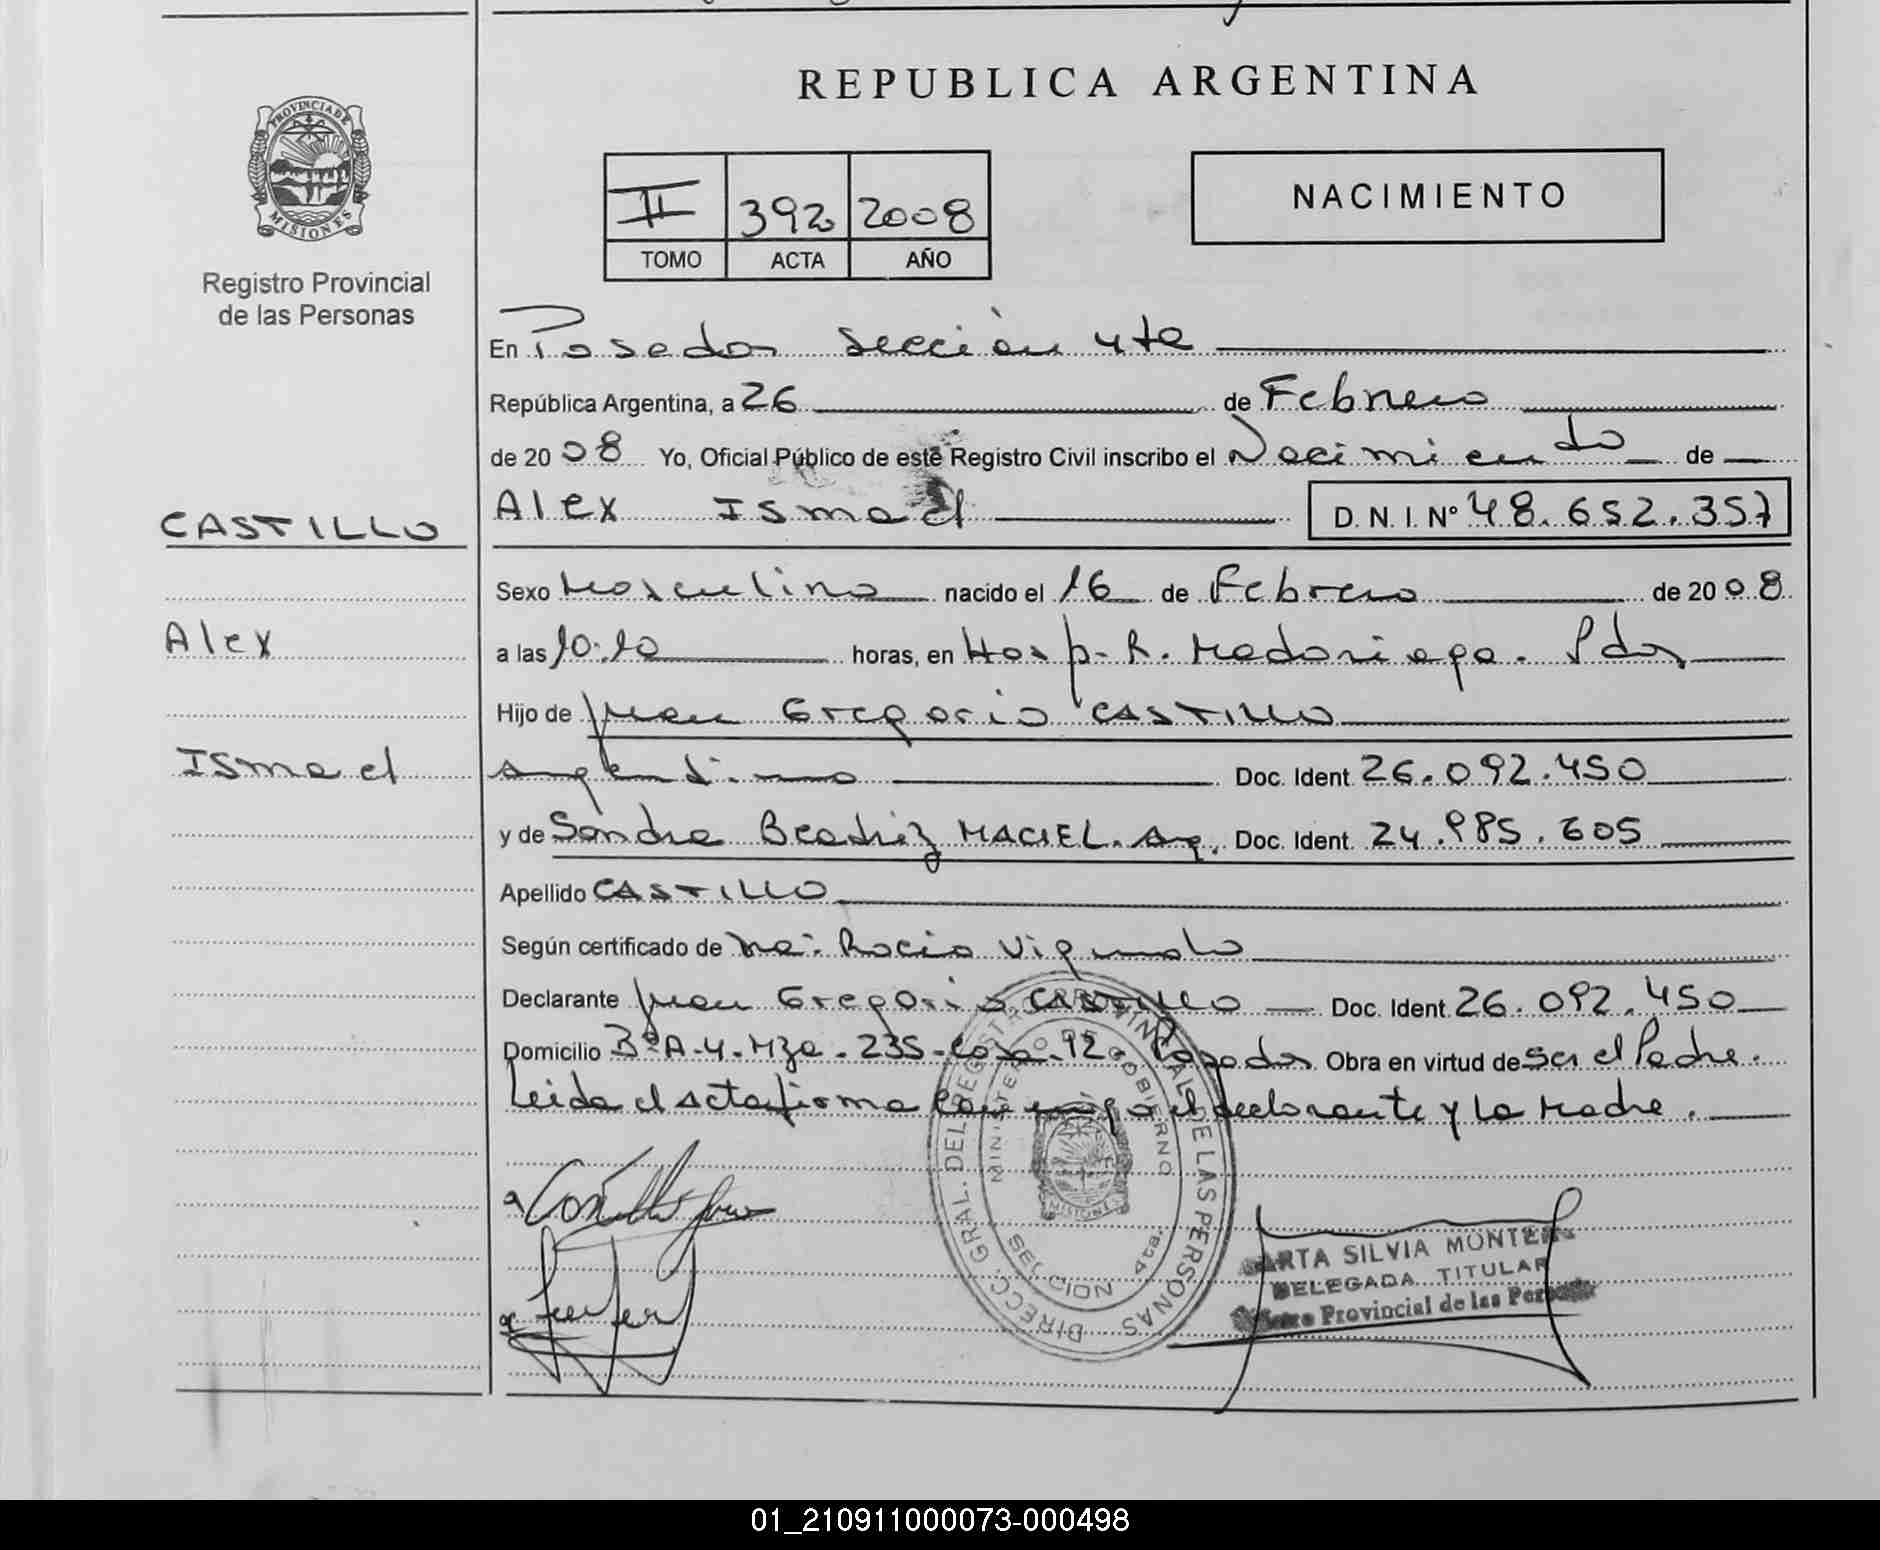 REPUBLICA ARGENTINA
PROVINCIA DE
MISIONES
Registro Provincial
de las Personas
II 392 2008
TOMO ACTA AÑO
NACIMIENTO
En Posadas Sección 4ta
República Argentina, a 26 de Febrero
de 2008 Yo, Oficial Público de este Registro Civil inscribo el Nacimiento de
CASTILLO
Alex Ismael D.N.I. Nº 48.652.357
Sexo Masculino nacido el 16 de Febrero de 2008
Alex
a las 10:10 horas, en Hosp. R. Madariaga. Pdas
Hijo de Juan Gregorio CASTILLO
Ismael
Argentino Doc. Ident. 26.092.450
y de Sandra Beatriz MACIEL. Arg. Doc. Ident. 24.985.605
Apellido CASTILLO
Según certificado de Rocio
Declarante Juan Gregorio CASTILLO Doc. Ident. 26.092.450
Domicilio Bº A-4-Mza. 235-Casa-12. Posadas Obra en virtud de ser el Padre.
Leida el acta firma conmigo el declarante y la Madre.
DIRECC. GRAL. DEL REGISTRO PROVINCIAL DE LAS PERSONAS
MINISTERIO DE GOBIERNO
MISIONES
SECCION 4ta.
SILVIA
DELEGADA TITULAR
Provincial de las
01_210911000073-000498